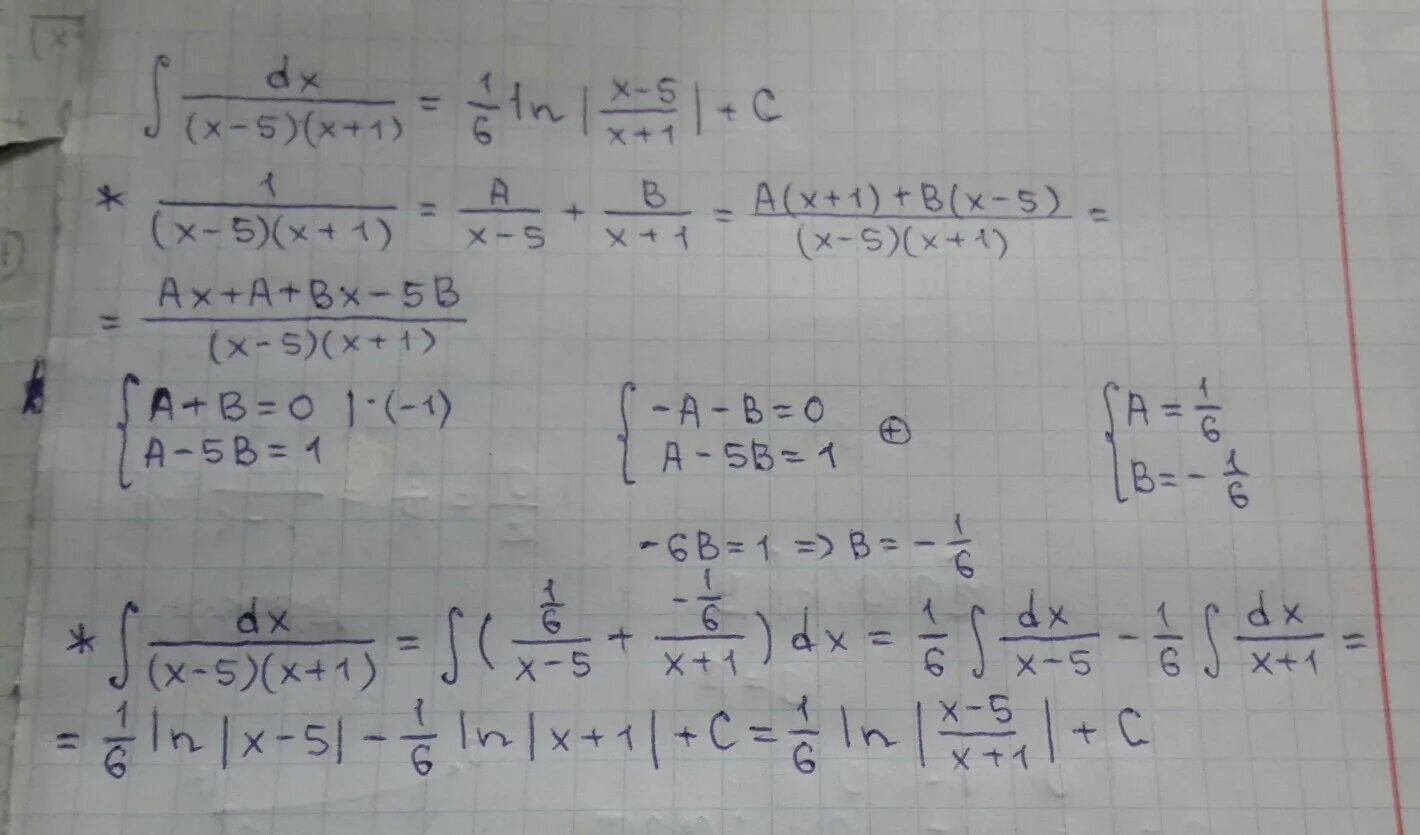 ∫ dx/((x-5)(x+1)) = 1/6 ln |(x-5)/(x+1)| + C
* 1/((x-5)(x+1)) = A/(x-5) + B/(x+1) = (A(x+1)+B(x-5))/((x-5)(x+1)) =
= (Ax+A+Bx-5B)/((x-5)(x+1))
{ A+B=0 |·(-1)
A-5B=1
{ -A-B=0
A-5B=1 ⊕
-6B=1 => B=-1/6
{ A=1/6
B=-1/6
* ∫ dx/((x-5)(x+1)) = ∫( (1/6)/(x-5) + (-1/6)/(x+1) ) dx = 1/6 ∫ dx/(x-5) - 1/6 ∫ dx/(x+1) =
= 1/6 ln |x-5| - 1/6 ln |x+1| + C = 1/6 ln |(x-5)/(x+1)| + C